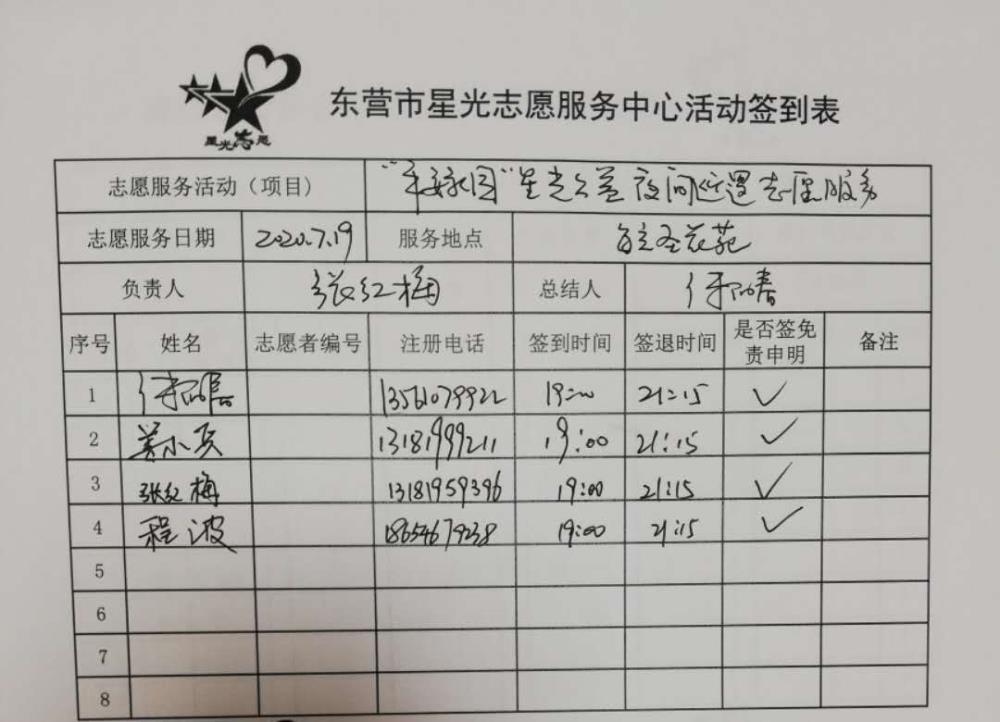 星光志愿
东营市星光志愿服务中心活动签到表
志愿服务活动（项目） "平安家园"星光公益夜间巡逻志愿服务
志愿服务日期 2020.7.19 服务地点 花苑
负责人 张红梅 总结人
序号 姓名 志愿者编号 注册电话 签到时间 签退时间 是否签免责申明 备注
1 13561079922 19:00 21:15 ✓
2 姜小 13181999211 19:00 21:15 ✓
3 张红梅 13181959396 19:00 21:15 ✓
4 程波 18654679238 19:00 21:15 ✓
5
6
7
8